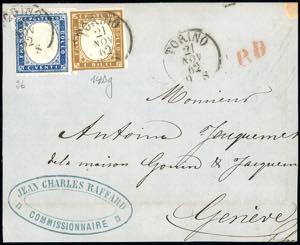 TORINO
21
NOV
62
TORINO
21
NOV
62
P.D
Monsieur
Antoine Jacquemet
de la maison Gonin & Jacquem
Genève
JEAN CHARLES RAFFARD
COMMISSIONNAIRE